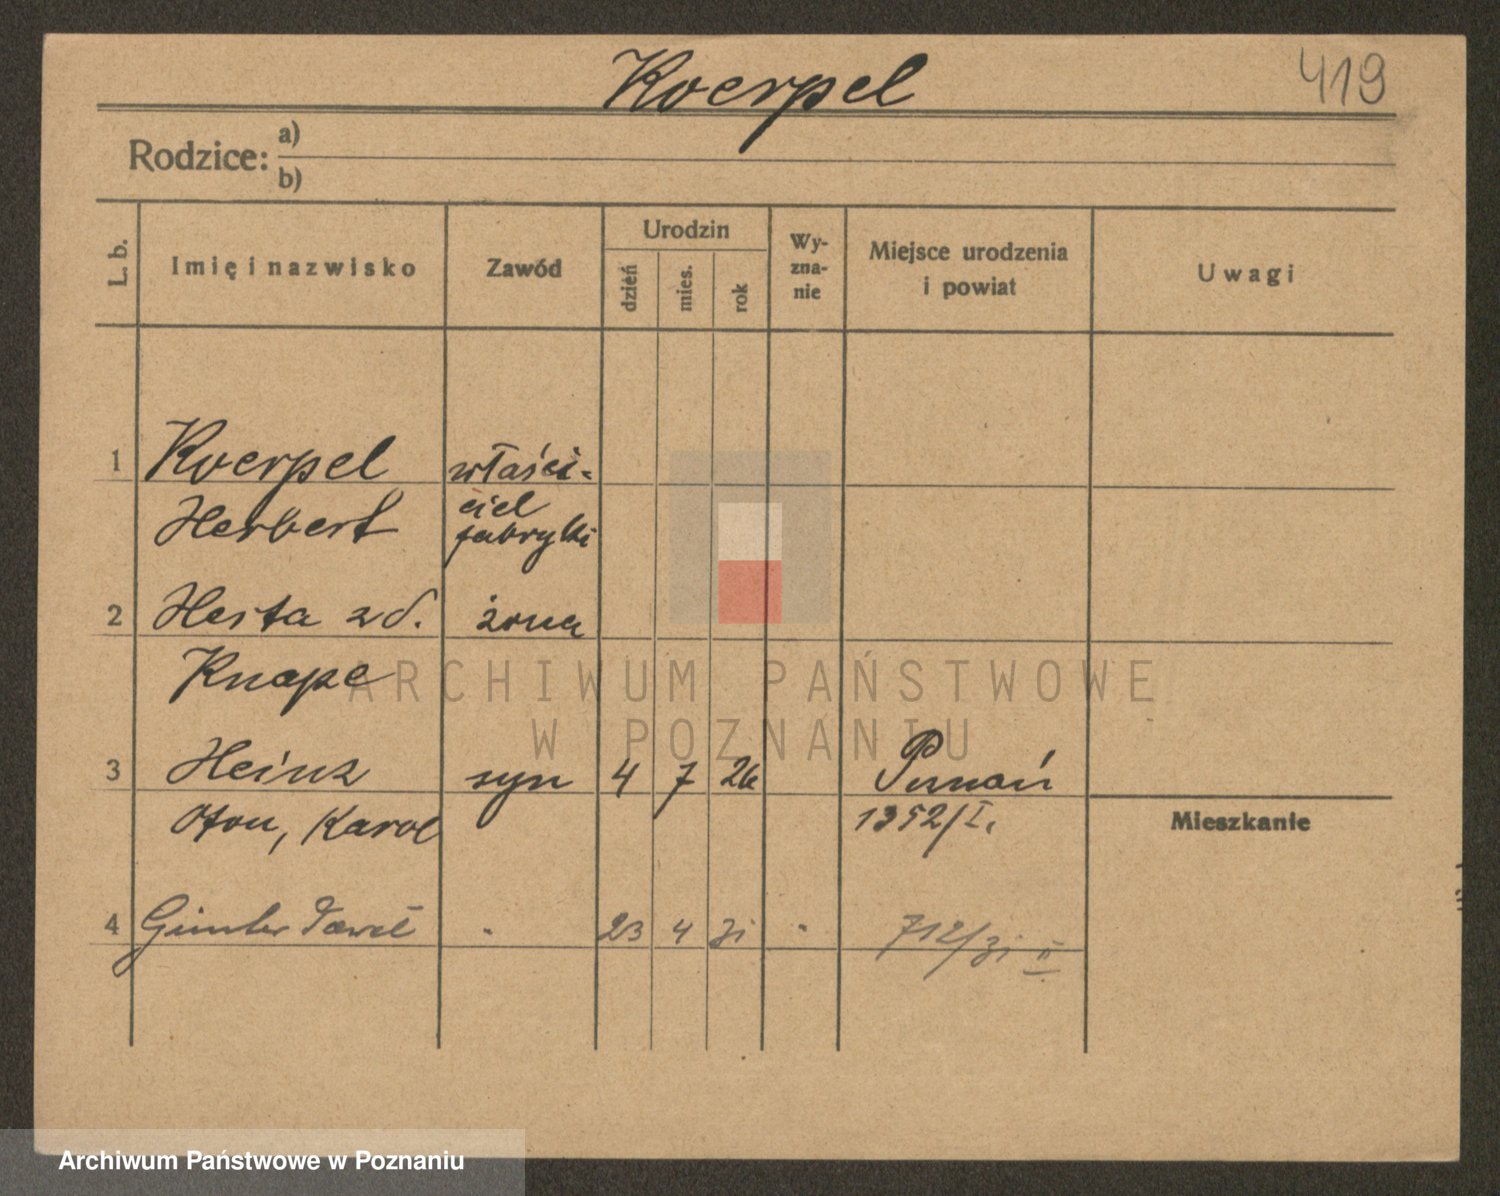 Koerpel
419
Rodzice:
a)
b)
L. b.
Imię i nazwisko
Zawód
Urodzin
dzień
mies.
rok
Wy-
zna-
nie
Miejsce urodzenia
i powiat
Uwagi
1 Koerpel właści-
Herbert ciel
fabryki
2 Herta zd. żona
Knape
3 Heinz syn 4 7 26 Poznań
Oton, Karol 1352/I.
Mieszkanie
4 Günter Paweł " 23 4 31 " 712/31 II
ARCHIWUM PAŃSTWOWE
W POZNANIU
Archiwum Państwowe w Poznaniu